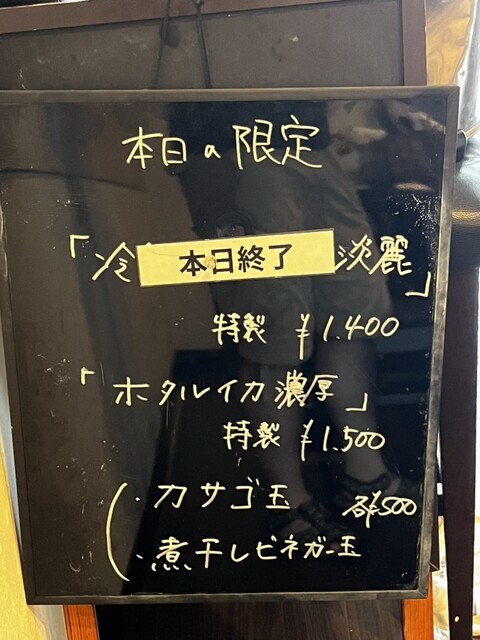 本日の限定
「冷 本日終了 淡麗」
特製 ¥1.400
「ホタルイカ濃厚」
特製 ¥1.500
・カサゴ玉 各¥500
・煮干しビネガー玉